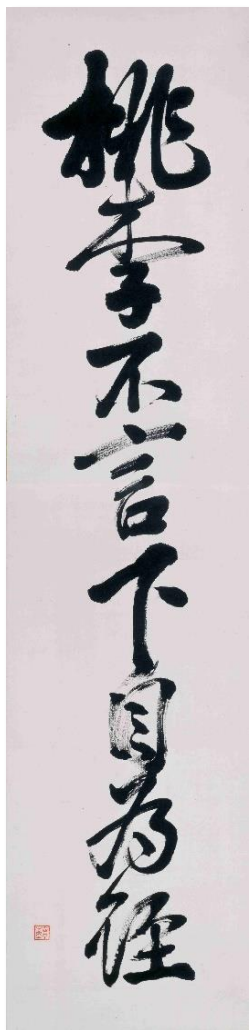 桃李不言下自為徑